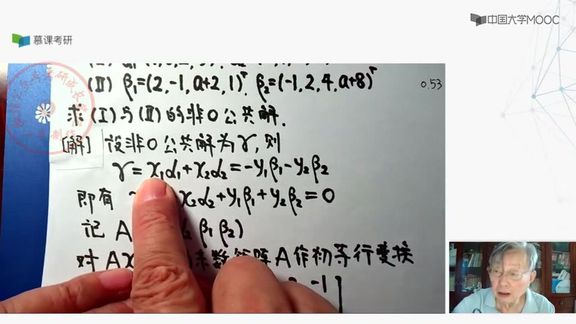 中国大学MOOC
慕课考研
(Ⅱ) β₁=(2,-1,a+2,1)ᵀ, β₂=(-1,2,4,a+8)ᵀ
0.53
求(Ⅰ)与(Ⅱ)的非0公共解.
[解] 设非0公共解为γ,则
γ=x₁α₁+x₂α₂=-y₁β₁-y₂β₂
即有 x₂α₂+y₁β₁+y₂β₂=0
记 A β₁ β₂)
对 A 作初等行变换
-1